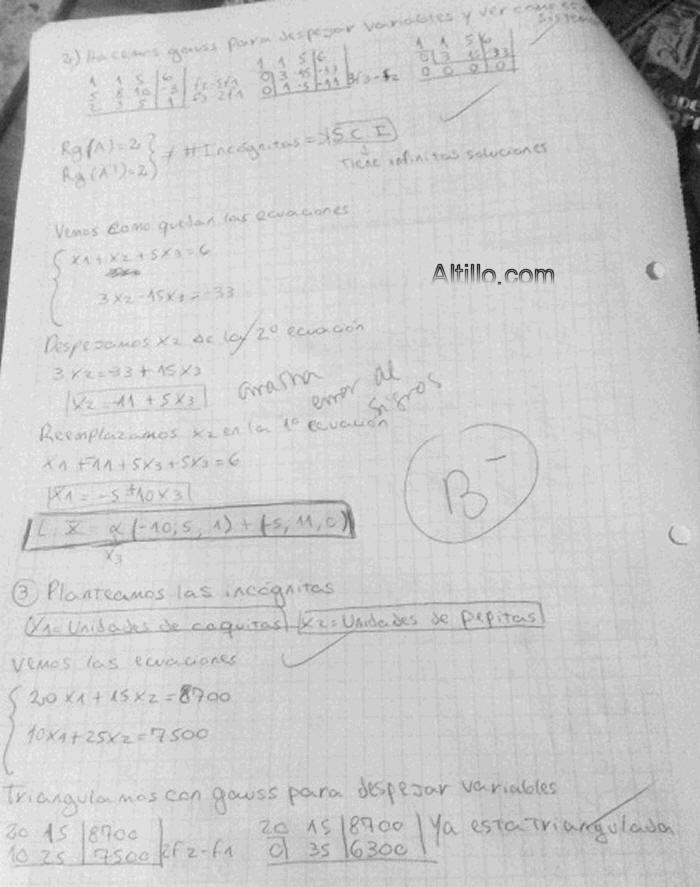 2) Hacemos gauss para despejar variables y ver como es
sistema
1 1 5 | 6
5 8 10 | -3 f2-5f1
2 3 5 | 1 f3-2f1
1 1 5 | 6
0 3 -15 | -33
0 1 -5 | -11 3f3-f2
1 1 5 | 6
0 3 15 | -33
0 0 0 | 0
Rg(A)=2
Rg(A')=2 } ≠ # Incógnitas => S.C.I
Tiene infinitas soluciones
Vemos como quedan las ecuaciones
x1+x2+5x3=6
3x2-15x3=-33
Altillo.com
Despejamos x2 de la 2º ecuación
3x2=-33+15x3
x2=-11+5x3
arrastra
error de
signos
Reemplazamos x2 en la 1º ecuación
x1+-11+5x3+5x3=6
x1=-5+10x3
B-
L: X = α(-10,5,1)+(-5,11,0)
x3
③ Planteamos las incógnitas
x1=Unidades de coquitas x2=Unidades de pepitas
Vemos las ecuaciones
20x1+15x2=8700
10x1+25x2=7500
Triangulamos con gauss para despejar variables
20 15 | 8700
10 25 | 7500 2f2-f1
20 15 | 8700
0 35 | 6300
Ya esta triangulada